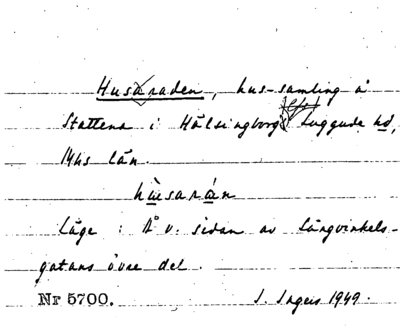 Husaraden, hus-samling å
Stattena i Hälsingborg Luggude hd,
Mhs län.
hùsarán
Läge: Å v. sidan av Långvinkels-
gatans övre del.
Nr 5700. J. Ingers 1949.